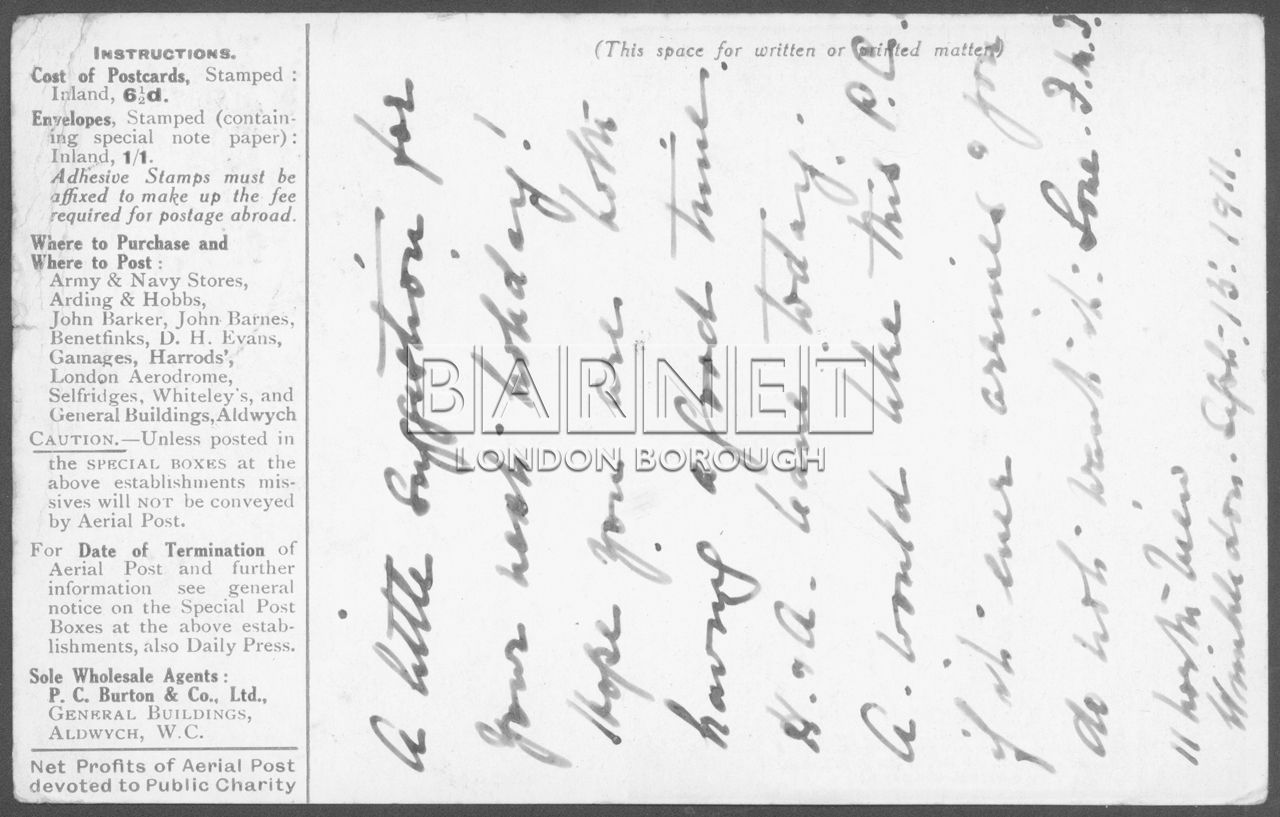 INSTRUCTIONS.
Cost of Postcards, Stamped :
Inland, 6½d.
Envelopes, Stamped (contain-
ing special note paper):
Inland, 1/1.
Adhesive Stamps must be
affixed to make up the fee
required for postage abroad.
Where to Purchase and
Where to Post :
Army & Navy Stores,
Arding & Hobbs,
John Barker, John Barnes,
Benetfinks, D. H. Evans,
Gamages, Harrods',
London Aerodrome,
Selfridges, Whiteley's, and
General Buildings, Aldwych
CAUTION.—Unless posted in
the SPECIAL BOXES at the
above establishments mis-
sives will NOT be conveyed
by Aerial Post.
For Date of Termination of
Aerial Post and further
information see general
notice on the Special Post
Boxes at the above estab-
lishments, also Daily Press.
Sole Wholesale Agents :
P. C. Burton & Co., Ltd.,
GENERAL BUILDINGS,
ALDWYCH, W.C.
Net Profits of Aerial Post
devoted to Public Charity
(This space for written or printed matter.)
A little suggestion for
your next holiday!
Hope you are both
having a good time.
H. & A. leave today.
A. would like this P.C.
if it ever arrives & you
do not want it. Love. F.M.T.
11 North View
Wimbledon. Sept. 13. 1911.
BARNET
LONDON BOROUGH